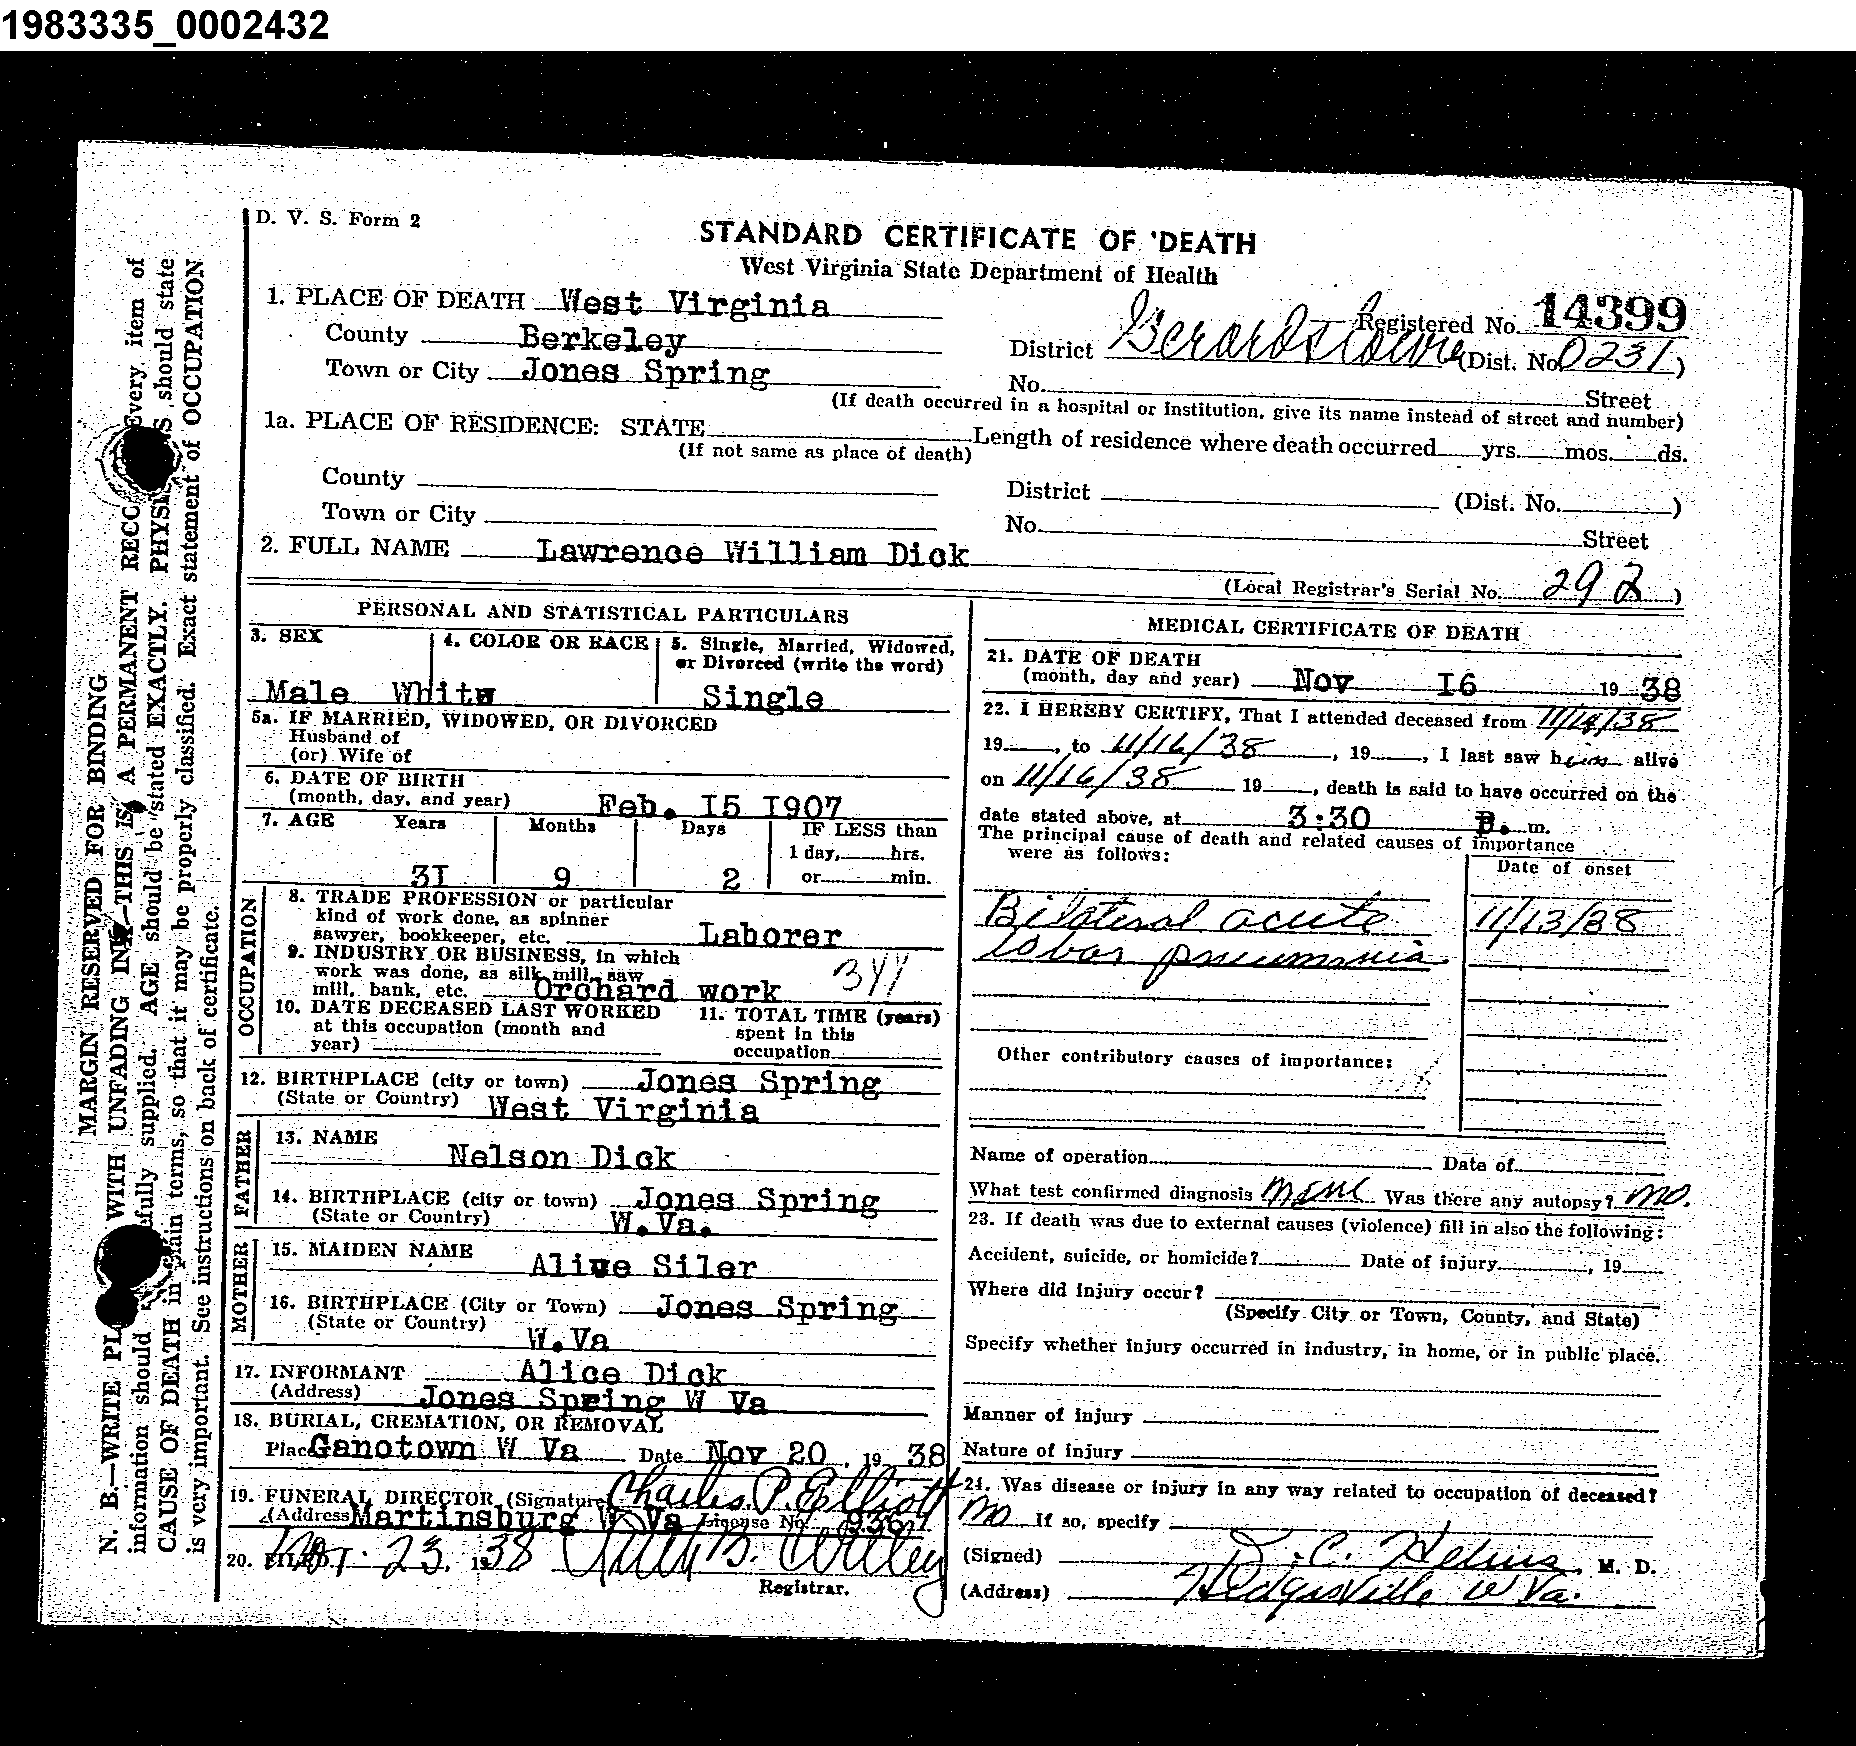 1983335_0002432
D. V. S. Form 2
STANDARD CERTIFICATE OF DEATH
West Virginia State Department of Health
1. PLACE OF DEATH West Virginia
Registered No. 14399
County Berkeley
District Gerardstown (Dist. No. 0231)
Town or City Jones Spring
No. Street
(If death occurred in a hospital or institution, give its name instead of street and number)
1a. PLACE OF RESIDENCE: STATE Length of residence where death occurred yrs. mos. ds.
(If not same as place of death)
County District (Dist. No. )
Town or City No. Street
2. FULL NAME Lawrence William Dick
(Local Registrar's Serial No. 292 )
PERSONAL AND STATISTICAL PARTICULARS
3. SEX 4. COLOR OR RACE 5. Single, Married, Widowed,
or Divorced (write the word)
Male White Single
5a. IF MARRIED, WIDOWED, OR DIVORCED
Husband of
(or) Wife of
6. DATE OF BIRTH
(month, day, and year) Feb. I5 I907
7. AGE Years Months Days IF LESS than
1 day, hrs.
3I 9 2 or min.
OCCUPATION
8. TRADE PROFESSION or particular
kind of work done, as spinner
sawyer, bookkeeper, etc. Laborer
9. INDUSTRY OR BUSINESS, in which
work was done, as silk mill, saw
mill, bank, etc. Orchard work
10. DATE DECEASED LAST WORKED
at this occupation (month and
year)
11. TOTAL TIME (years)
spent in this
occupation
12. BIRTHPLACE (city or town) Jones Spring
(State or Country) West Virginia
FATHER
13. NAME
Nelson Dick
14. BIRTHPLACE (city or town) Jones Spring
(State or Country) W.Va.
MOTHER
15. MAIDEN NAME
Siler
16. BIRTHPLACE (City or Town) Jones Spring
(State or Country)
W.Va
17. INFORMANT Alice Dick
(Address) Jones Spring W Va
18. BURIAL, CREMATION, OR REMOVAL
Place Ganotown W Va Date Nov 20 , 19 38
19. FUNERAL DIRECTOR (Signature) Charles P. Elliott
(Address) Martinsburg W Va License No.
20. FILED 23. 1938
Registrar.
MEDICAL CERTIFICATE OF DEATH
21. DATE OF DEATH
(month, day and year) Nov I6 19 38
22. I HEREBY CERTIFY, That I attended deceased from
19 , to 11/16/38 , 19 , I last saw him alive
on 11/16/38 19 , death is said to have occurred on the
date stated above, at 3:30 m.
The principal cause of death and related causes of importance
were as follows:
Date of onset
Bilateral acute 11/13/38
lobar pneumonia
Other contributory causes of importance:
Name of operation Date of
What test confirmed diagnosis Was there any autopsy? no.
23. If death was due to external causes (violence) fill in also the following:
Accident, suicide, or homicide? Date of injury , 19
Where did injury occur?
(Specify City or Town, County, and State)
Specify whether injury occurred in industry, in home, or in public place.
Manner of injury
Nature of injury
24. Was disease or injury in any way related to occupation of deceased?
no If so, specify
(Signed) C. Helms, M. D.
(Address) Hedgesville W Va.
MARGIN RESERVED FOR BINDING
N. B.—WRITE WITH UNFADING INK—THIS IS A PERMANENT Every item of
information should supplied. AGE should be stated EXACTLY. should state
CAUSE OF DEATH in plain terms, so that it may be properly classified. Exact statement of OCCUPATION
is very important. See instructions on back of certificate.